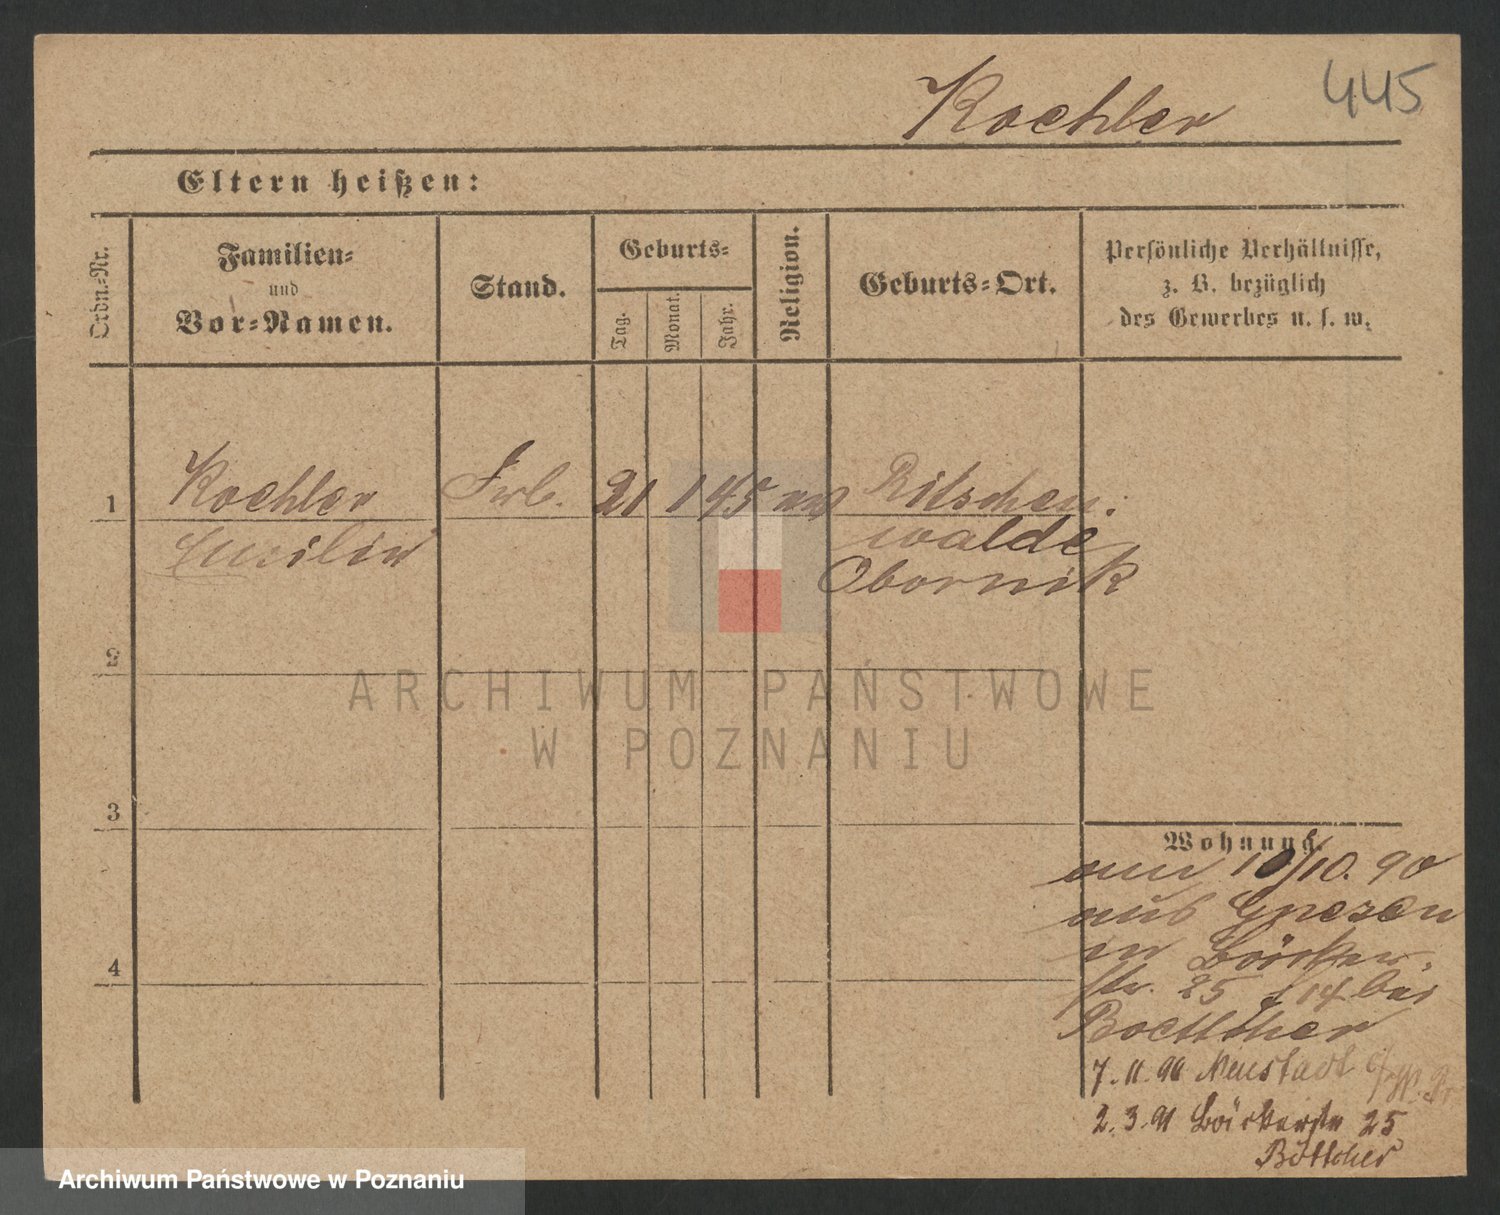 Koehler 445
Eltern heißen:
Ordn.-Nr.
Familien-
und
Vor-Namen.
Stand.
Geburts-
Tag.
Monat.
Jahr.
Religion.
Geburts-Ort.
Persönliche Verhältnisse,
z. B. bezüglich
des Gewerbes u. s. w.
1 Koehler Frl. 21 1 45 Ritschen-
walde
Obornik
2
3
4
Wohnung.
10/10. 90
aus Gnesen
in Bäcker-
str. 25 bei
Boettcher
7.11.90 Neustadt
2.3.91 Bäckerstr 25
Böttcher
ARCHIWUM PAŃSTWOWE
W POZNANIU
Archiwum Państwowe w Poznaniu